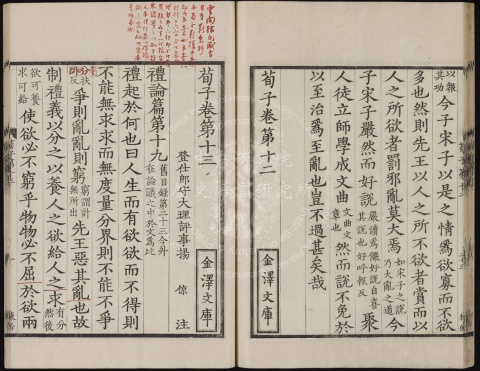 以報其功 今子宋子以是之情爲欲寡而不欲
多也然則先王以人之所不欲者賞而以
人之所欲者罰邪亂莫大焉 如宋子之說乃大亂之道 今
子宋子嚴然而好說 嚴讀爲儼好說自喜其說也好呼報反 聚
人徒立師學成文曲 文曲文章也 然而說不免於
以至治爲至亂也豈不過甚矣哉
荀子卷第十二
金澤文庫
荀子卷第十三
登仕郎守大理評事楊 倞 注
金澤文庫
禮論篇第十九 舊目錄第二十三今升在論議之中於文爲比
禮起於何也曰人生而有欲欲而不得則
不能無求求而無度量分界則不能不爭
爭則亂亂則窮 窮謂計無所出 先王惡其亂也故
制禮義以分之以養人之欲給人之求 有分然後
欲可養求可給 使欲必不窮乎物物必不屈於欲兩